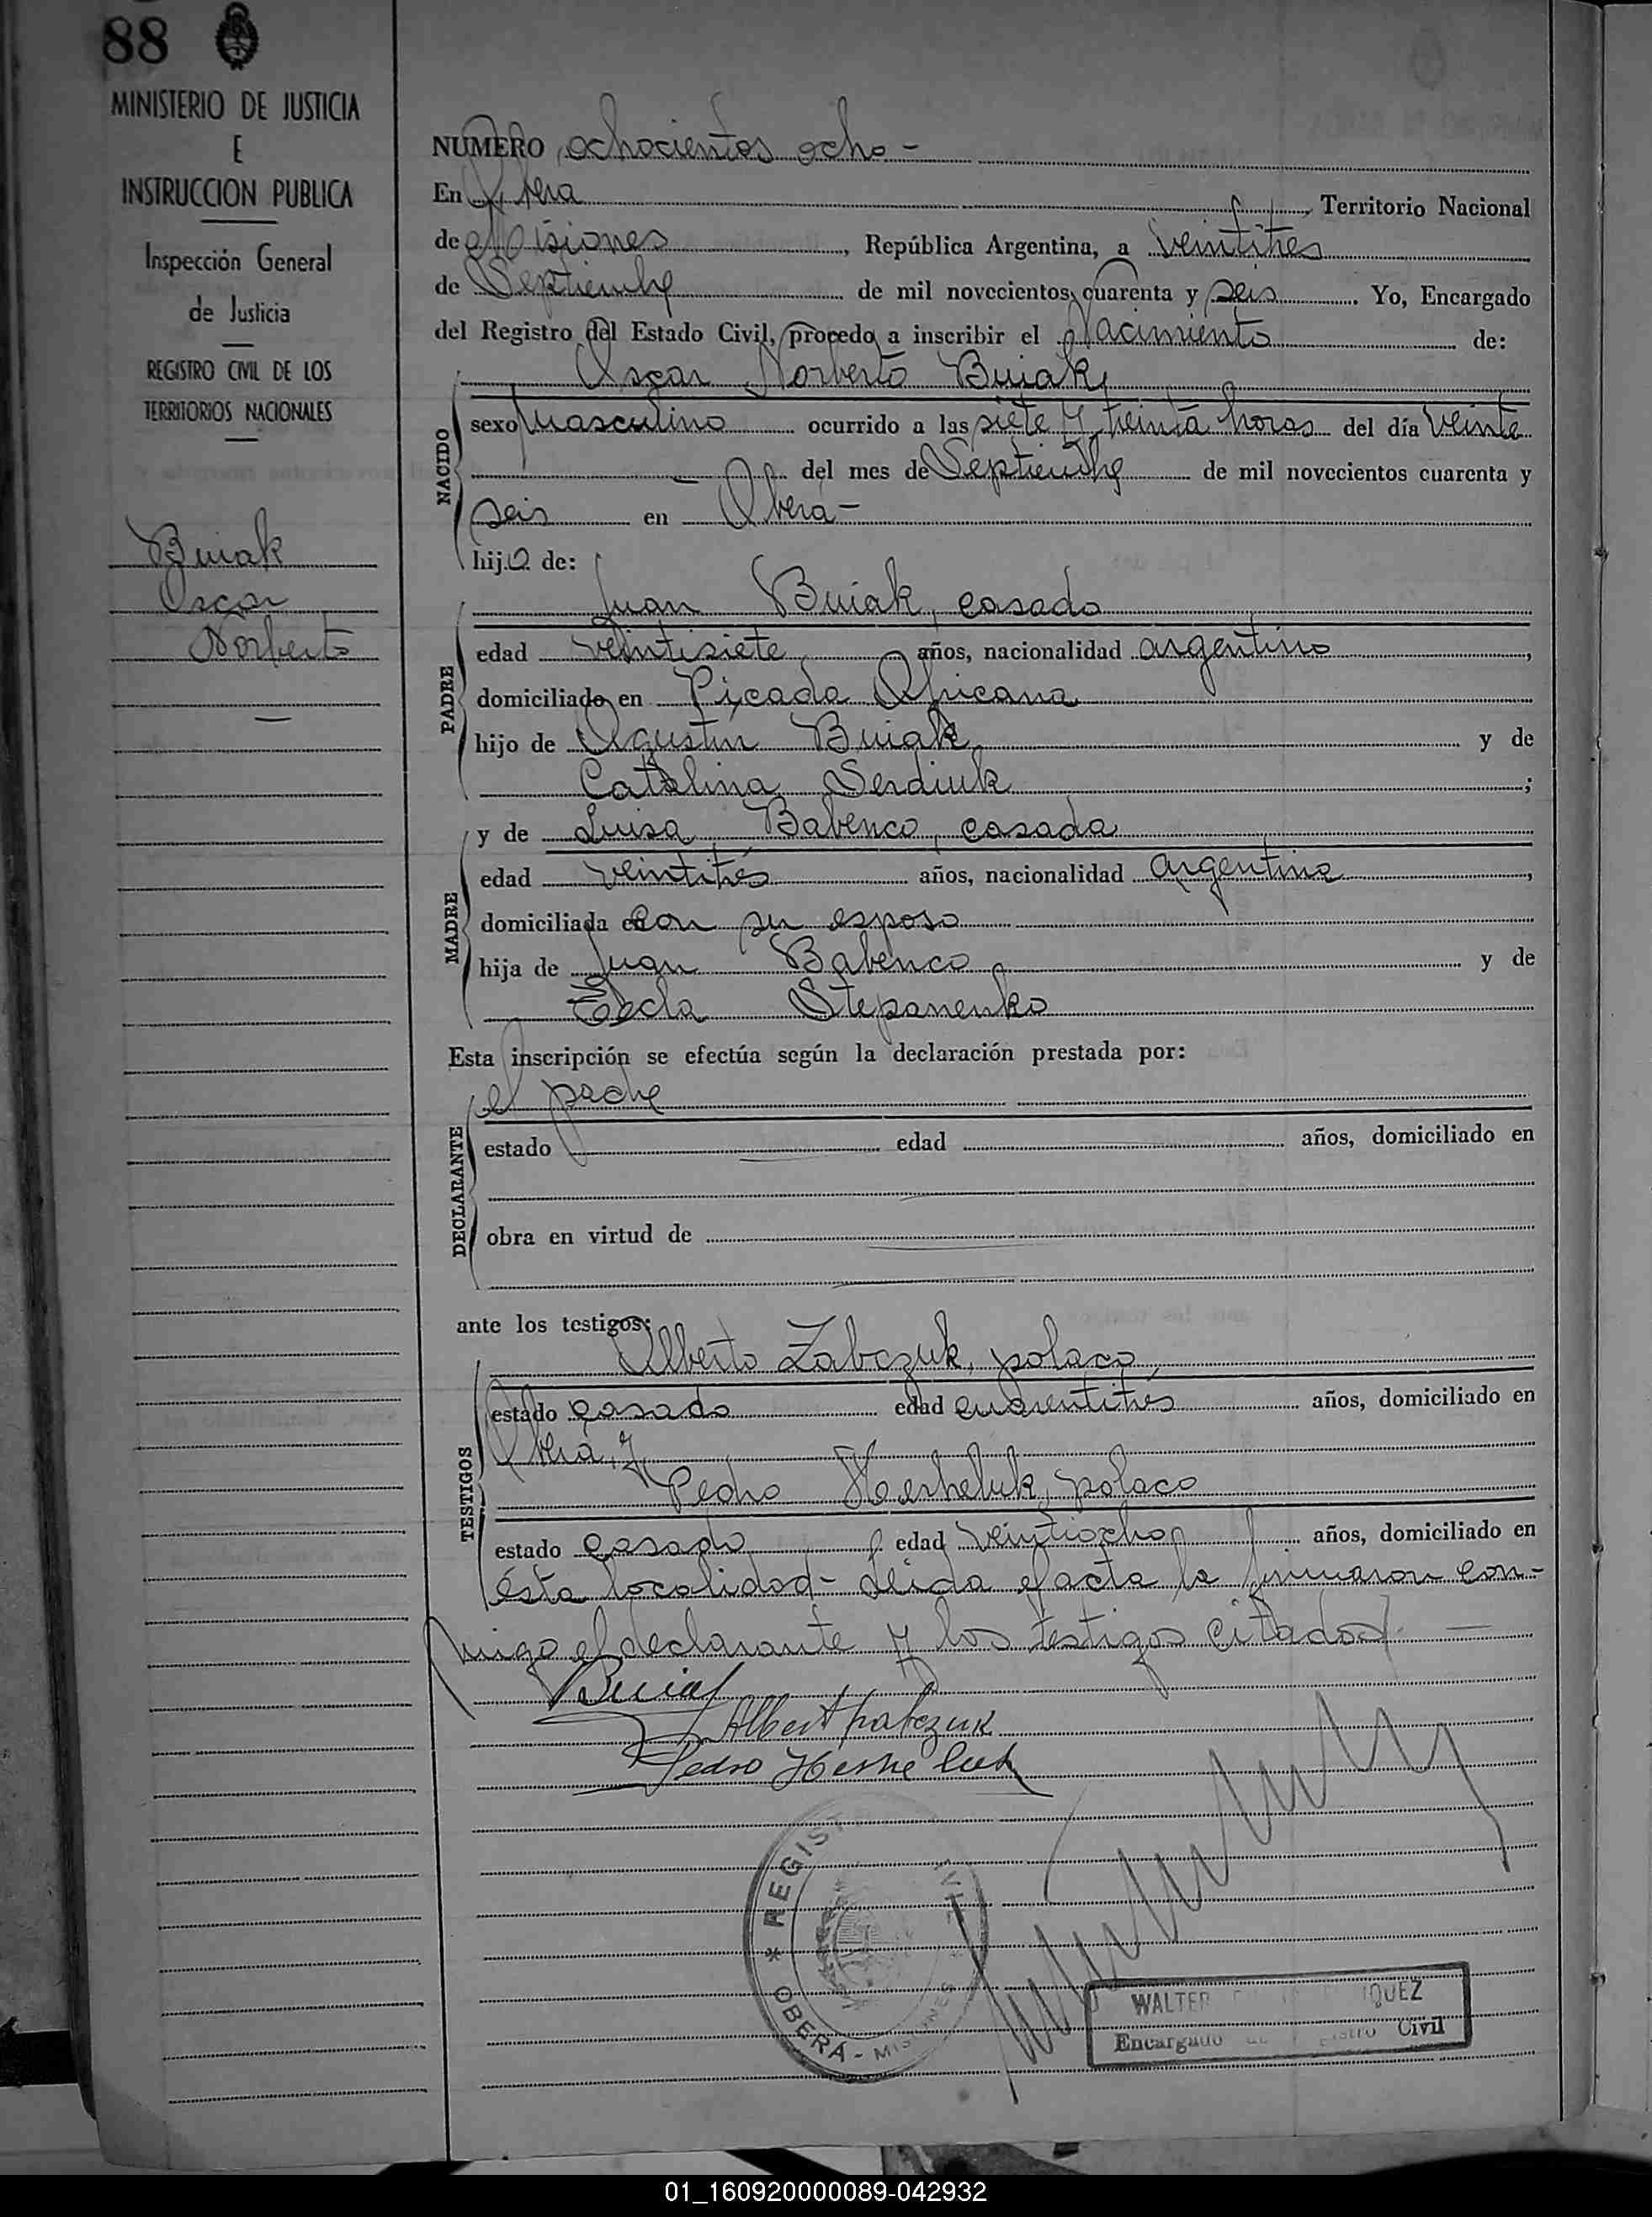 88
MINISTERIO DE JUSTICIA
E
INSTRUCCION PUBLICA
Inspección General
de Justicia
REGISTRO CIVIL DE LOS
TERRITORIOS NACIONALES
Buiak
Oscar
Norberto
NUMERO ochocientos ocho -
En Oberá, Territorio Nacional
de Misiones, República Argentina, a veintitres
de Septiembre de mil novecientos cuarenta y seis. Yo, Encargado
del Registro del Estado Civil, procedo a inscribir el Nacimiento de:
Oscar Norberto Buiak
NACIDO
sexo masculino ocurrido a las siete y treinta horas del día veinte
del mes de Septiembre de mil novecientos cuarenta y
seis en Oberá -
hijo de:
PADRE
Juan Buiak, casado
edad veintisiete años, nacionalidad argentino,
domiciliado en Picada Africana
hijo de Agustin Buiak y de
Catalina Serdiuk;
MADRE
y de Luisa Babenco, casada
edad veintitrés años, nacionalidad argentina,
domiciliada con su esposo
hija de Juan Babenco y de
Tecla Stepanenko
Esta inscripción se efectúa según la declaración prestada por:
DECLARANTE
el padre
estado edad años, domiciliado en
obra en virtud de
ante los testigos:
TESTIGOS
Alberto Zabczuk, polaco,
estado casado edad cuarentitrés años, domiciliado en
Oberá, y
Pedro Herheluk, polaco
estado casado edad veintiocho años, domiciliado en
ésta localidad - Leida el acta la firmaron con-
migo el declarante y los testigos citados -
Buiak
Albert Zabczuk
Pedro Herheluk
REGIST
OBERÁ - MISIONES
WALTER QUEZ
Encargado Civil
01_160920000089-042932